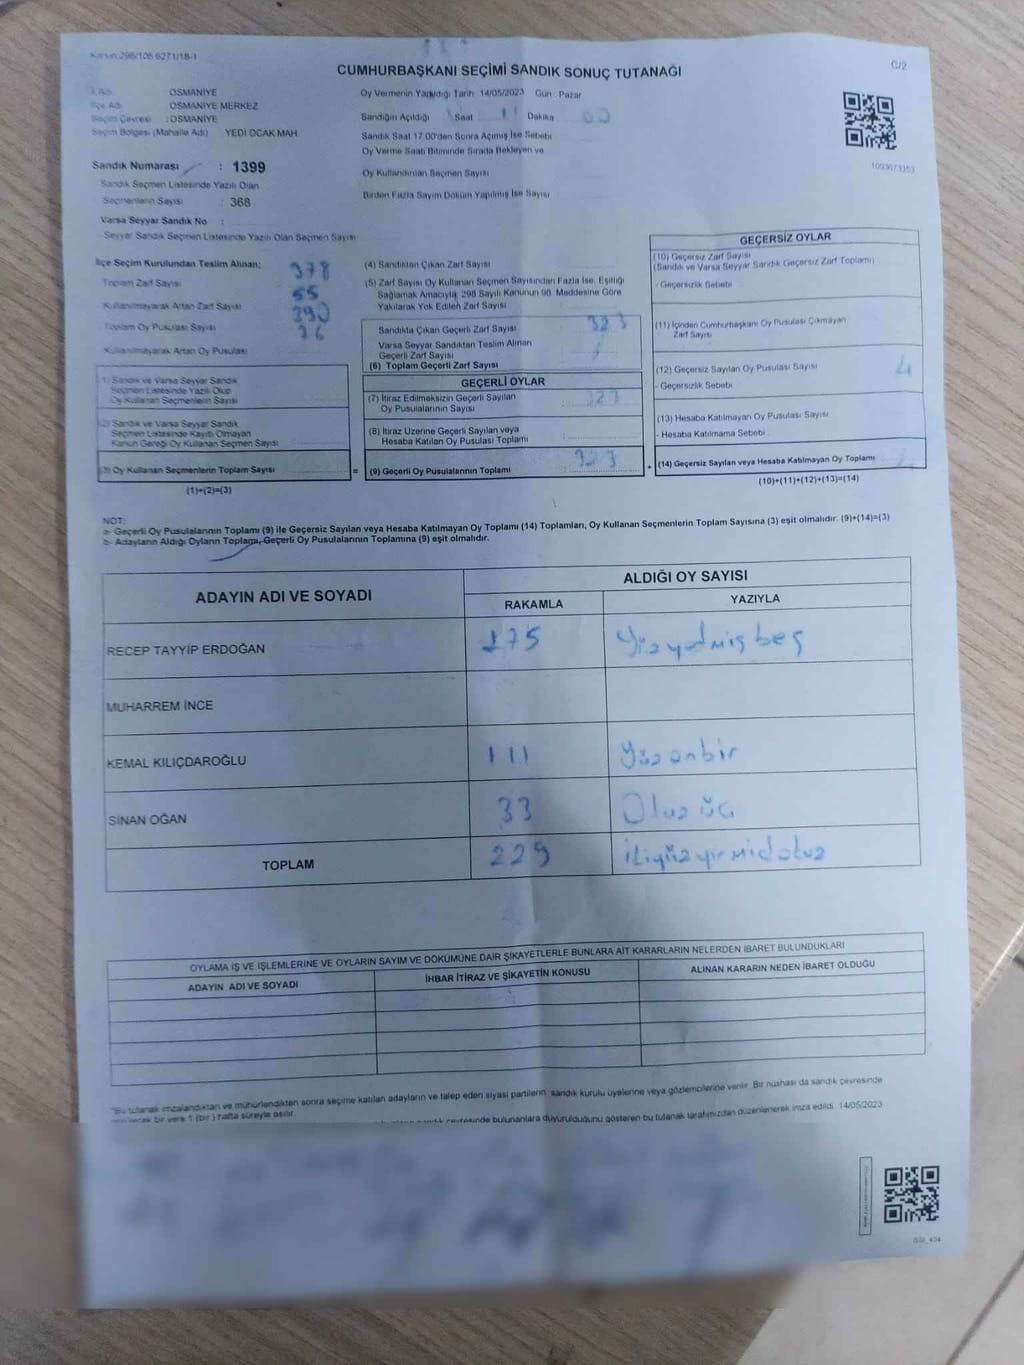 Kanun 298/105 6271/18-1
C/2
CUMHURBAŞKANI SEÇİMİ SANDIK SONUÇ TUTANAĞI
İl Adı OSMANİYE
İlçe Adı OSMANİYE MERKEZ
Seçim Çevresi : OSMANİYE
Seçim Bölgesi (Mahalle Adı) YEDİ OCAK MAH
Oy Vermenin Yapıldığı Tarih 14/05/2023 Gün : Pazar
Sandığın Açıldığı Saat Dakika
Sandık Saat 17:00'den Sonra Açımış İse Sebebi
Oy Verme Saati Bitiminde Sırada Bekleyen ve
Oy Kullandırılan Seçmen Sayısı
Birden Fazla Sayım Döküm Yapılmış İse Sayısı
Sandık Numarası : 1399
Sandık Seçmen Listesinde Yazılı Olan
Seçmenlerin Sayısı : 368
Varsa Seyyar Sandık No :
Seyyar Sandık Seçmen Listesinde Yazılı Olan Seçmen Sayısı
İlçe Seçim Kurulundan Teslim Alınan;
Toplam Zarf Sayısı 378
Kullanılmayarak Artan Zarf Sayısı 55
Toplam Oy Pusulası Sayısı 390
Kullanılmayarak Artan Oy Pusulası
(1) Sandık ve Varsa Seyyar Sandık
Seçmen Listesinde Yazılı Olup
Oy Kullanan Seçmenlerin Sayısı
(2) Sandık ve Varsa Seyyar Sandık
Seçmen Listesinde Kayıtlı Olmayan
Kanun Gereği Oy Kullanan Seçmen Sayısı
(3) Oy Kullanan Seçmenlerin Toplam Sayısı =
(1)+(2)=(3)
(4) Sandıktan Çıkan Zarf Sayısı
(5) Zarf Sayısı Oy Kullanan Seçmen Sayısından Fazla İse, Eşitliği
Sağlamak Amacıyla; 298 Sayılı Kanunun 98. Maddesine Göre
Yakılarak Yok Edilen Zarf Sayısı
Sandıkta Çıkan Geçerli Zarf Sayısı 323
Varsa Seyyar Sandıktan Teslim Alınan
Geçerli Zarf Sayısı
(6) Toplam Geçerli Zarf Sayısı
GEÇERLİ OYLAR
(7) İtiraz Edilmeksizin Geçerli Sayılan
Oy Pusulalarının Sayısı 323
(8) İtiraz Üzerine Geçerli Sayılan veya
Hesaba Katılan Oy Pusulası Toplamı
(9) Geçerli Oy Pusulalarının Toplamı 323 +
GEÇERSİZ OYLAR
(10) Geçersiz Zarf Sayısı
(Sandık ve Varsa Seyyar Sandık Geçersiz Zarf Toplamı)
- Geçersizlik Sebebi
(11) İçinden Cumhurbaşkanı Oy Pusulası Çıkmayan
Zarf Sayısı
(12) Geçersiz Sayılan Oy Pusulası Sayısı 4
- Geçersizlik Sebebi
(13) Hesaba Katılmayan Oy Pusulası Sayısı
- Hesaba Katılmama Sebebi
(14) Geçersiz Sayılan veya Hesaba Katılmayan Oy Toplamı
(10)+(11)+(12)+(13)=(14)
NOT:
a- Geçerli Oy Pusulalarının Toplamı (9) ile Geçersiz Sayılan veya Hesaba Katılmayan Oy Toplamı (14) Toplamları, Oy Kullanan Seçmenlerin Toplam Sayısına (3) eşit olmalıdır. (9)+(14)=(3)
b- Adayların Aldığı Oyların Toplamı, Geçerli Oy Pusulalarının Toplamına (9) eşit olmalıdır.
ADAYIN ADI VE SOYADI
ALDIĞI OY SAYISI
RAKAMLA YAZIYLA
RECEP TAYYİP ERDOĞAN 175 Yüzyetmişbeş
MUHARREM İNCE
KEMAL KILIÇDAROĞLU 111 Yüzonbir
SİNAN OĞAN 33 Otuzüç
TOPLAM 229 ikiyüzyirmidokuz
OYLAMA İŞ VE İŞLEMLERİNE VE OYLARIN SAYIM VE DÖKÜMÜNE DAİR ŞİKAYETLERLE BUNLARA AİT KARARLARIN NELERDEN İBARET BULUNDUKLARI
ADAYIN ADI VE SOYADI İHBAR İTİRAZ VE ŞİKAYETİN KONUSU ALINAN KARARIN NEDEN İBARET OLDUĞU
"Bu tutanak imzalandıktan ve mühürlendikten sonra seçime katılan adayların ve talep eden siyasi partilerin sandık kurulu üyelerine veya gözlemcilerine verilir. Bir nüshası da sandık çevresinde
bir yere 1 (bir) hafta süreyle asılır.
çevresinde bulunanlara duyurulduğunu gösteren bu tutanak tarafımızdan düzenlenerek imza edildi. 14/05/2023